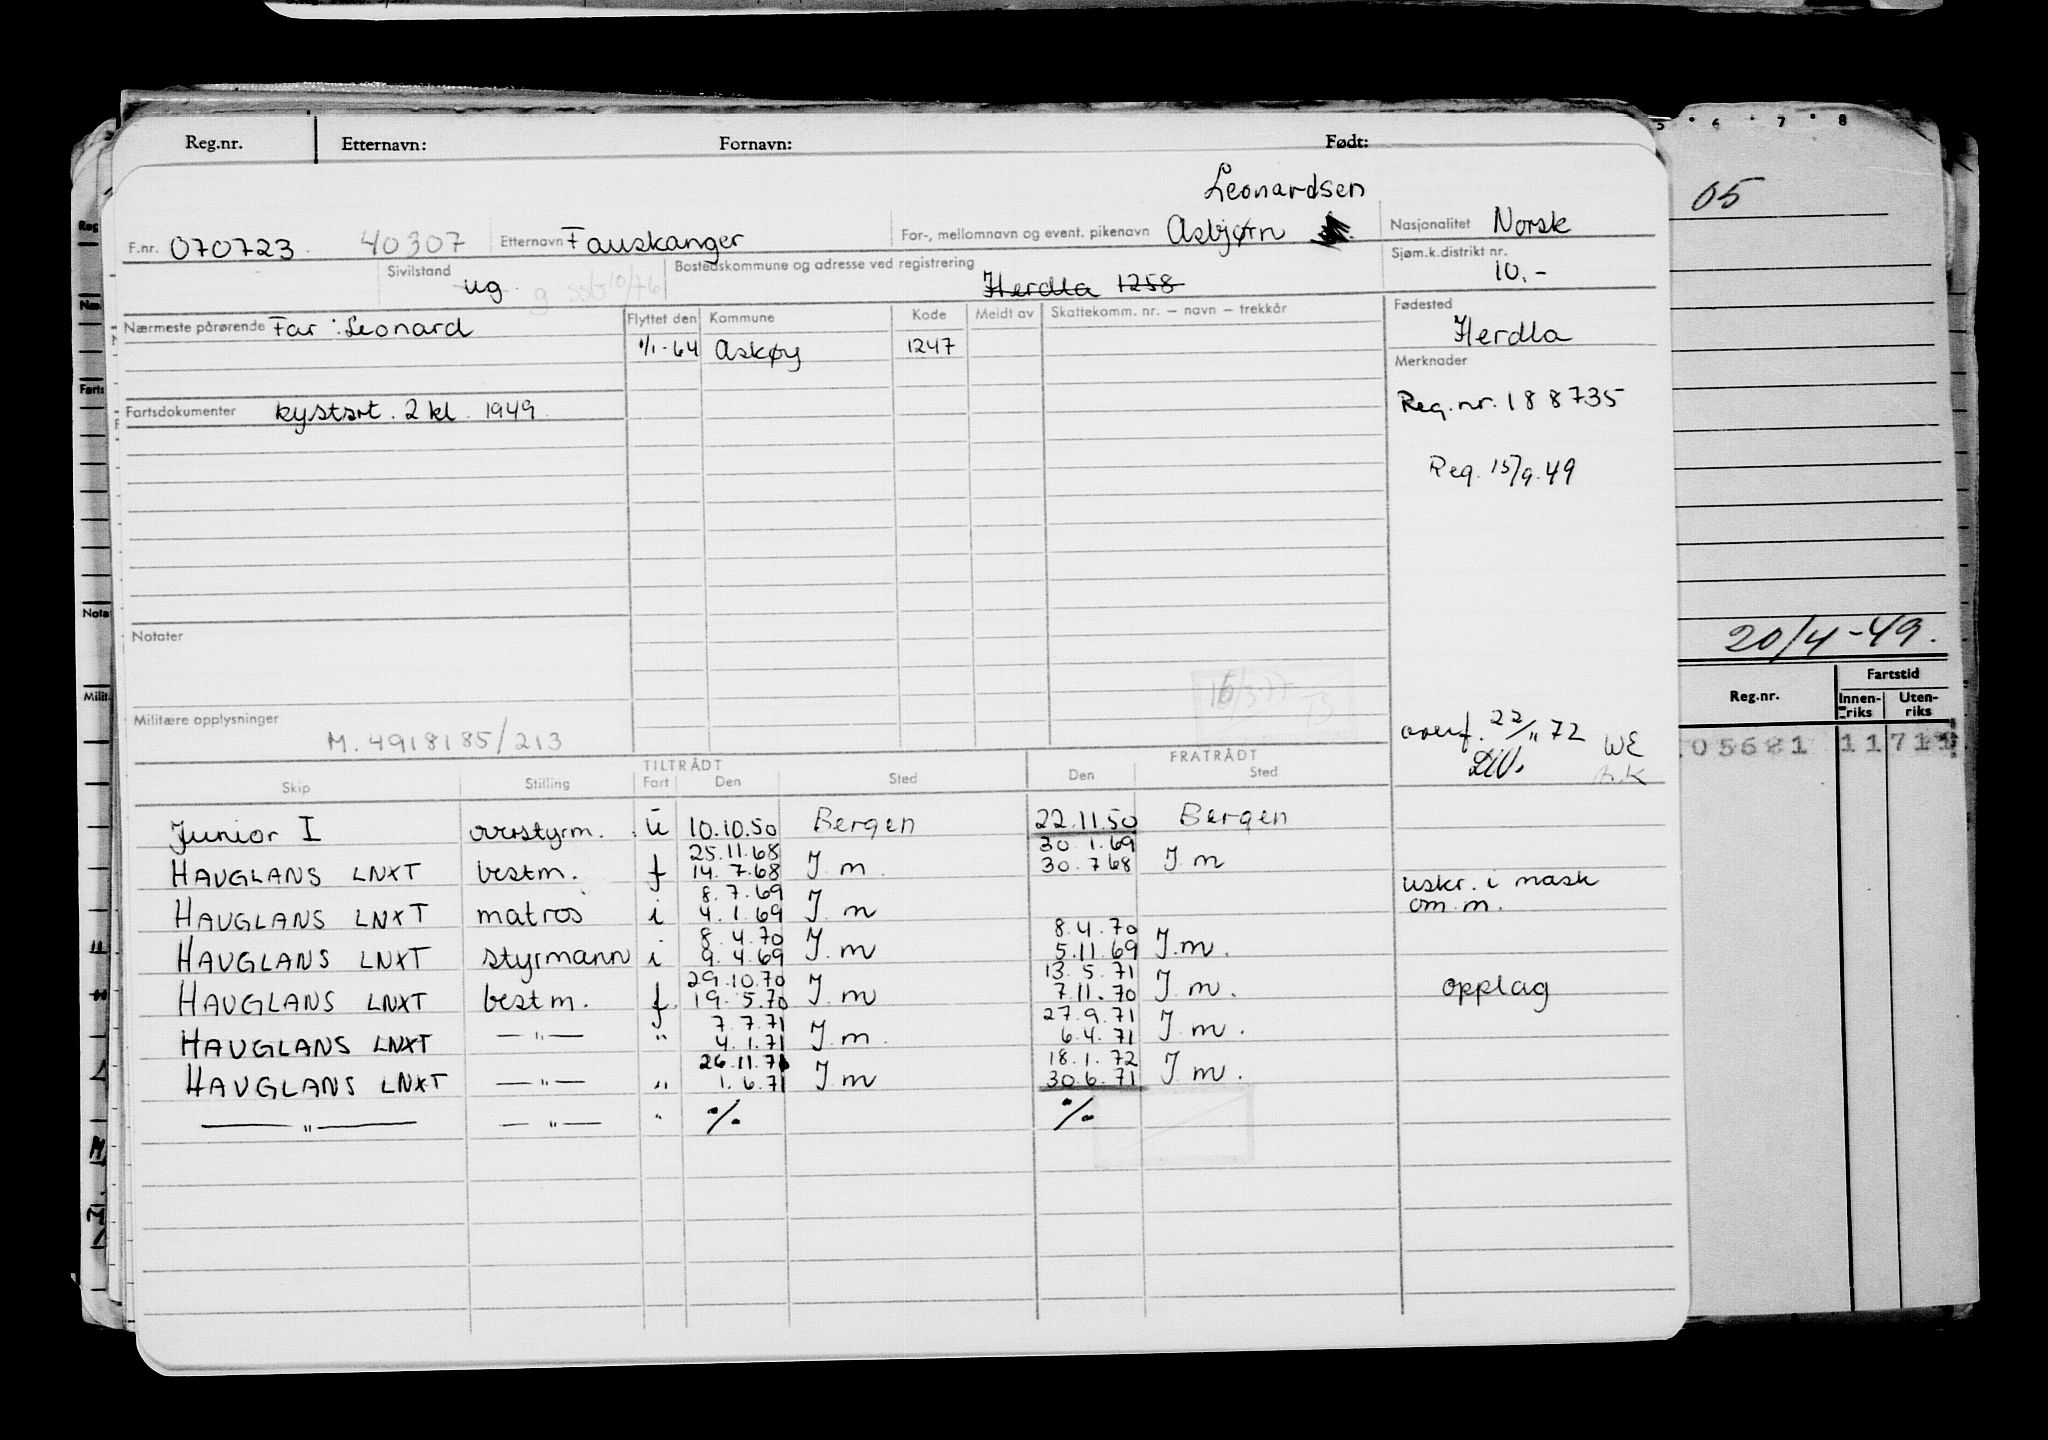 Reg.nr. Etternavn: Fornavn: Født:
5 6 7 8
05
Leonardsen
F.nr. 070723. 40307 Etternavn Fauskanger For-, mellomnavn og event. pikenavn Asbjørn Nasjonalitet Norsk
Sivilstand ug. g ssb 10/76 Bostedskommune og adresse ved registrering Herdla 1258 Sjøm.k.distrikt nr. 10.-
Nærmeste pårørende Far: Leonard Flyttet den Kommune Kode Meldt av Skattekomm. nr. – navn – trekkår Fødested
1/1-64 Askøy 1247 Herdla
Merknader
Fartsdokumenter kystsrt. 2 kl. 1949. Reg.nr. 188735
Reg. 15/9.49
Notater
20/4-49.
Fartstid
Reg.nr. Innen-riks Uten-riks
16/3-77 TS
Militære opplysninger M.4918185/213 overf. 22/11 72
WE
05681 11711
TILTRÅDT FRATRÅDT
Skip Stilling Fart Den Sted Den Sted
Junior I overstyrm. u 10.10.50 Bergen 22.11.50 Bergen
25.11.68 30.1.69
HAUGLANS LNXT bestm. f 14.7.68 J.m. 30.7.68 J.m
8.7.69 uskr. i mask
HAUGLANS LNXT matros i 4.1.69 J.m om.m.
8.4.70 8.4.70
HAUGLANS LNXT styrmann i 9.4.69 J.m 5.11.69 J.m.
29.10.70 13.5.71
HAUGLANS LNXT bestm. f 19.5.70 J.m 7.11.70 J.m. opplag
7.7.71 27.9.71
HAUGLANS LNXT —"— " 4.1.71 J.m. 6.4.71 J.m.
26.11.71 18.1.72
HAUGLANS LNXT —"— " 1.6.71 J.m 30.6.71 J.m.
—"— —"— " ./. ./.